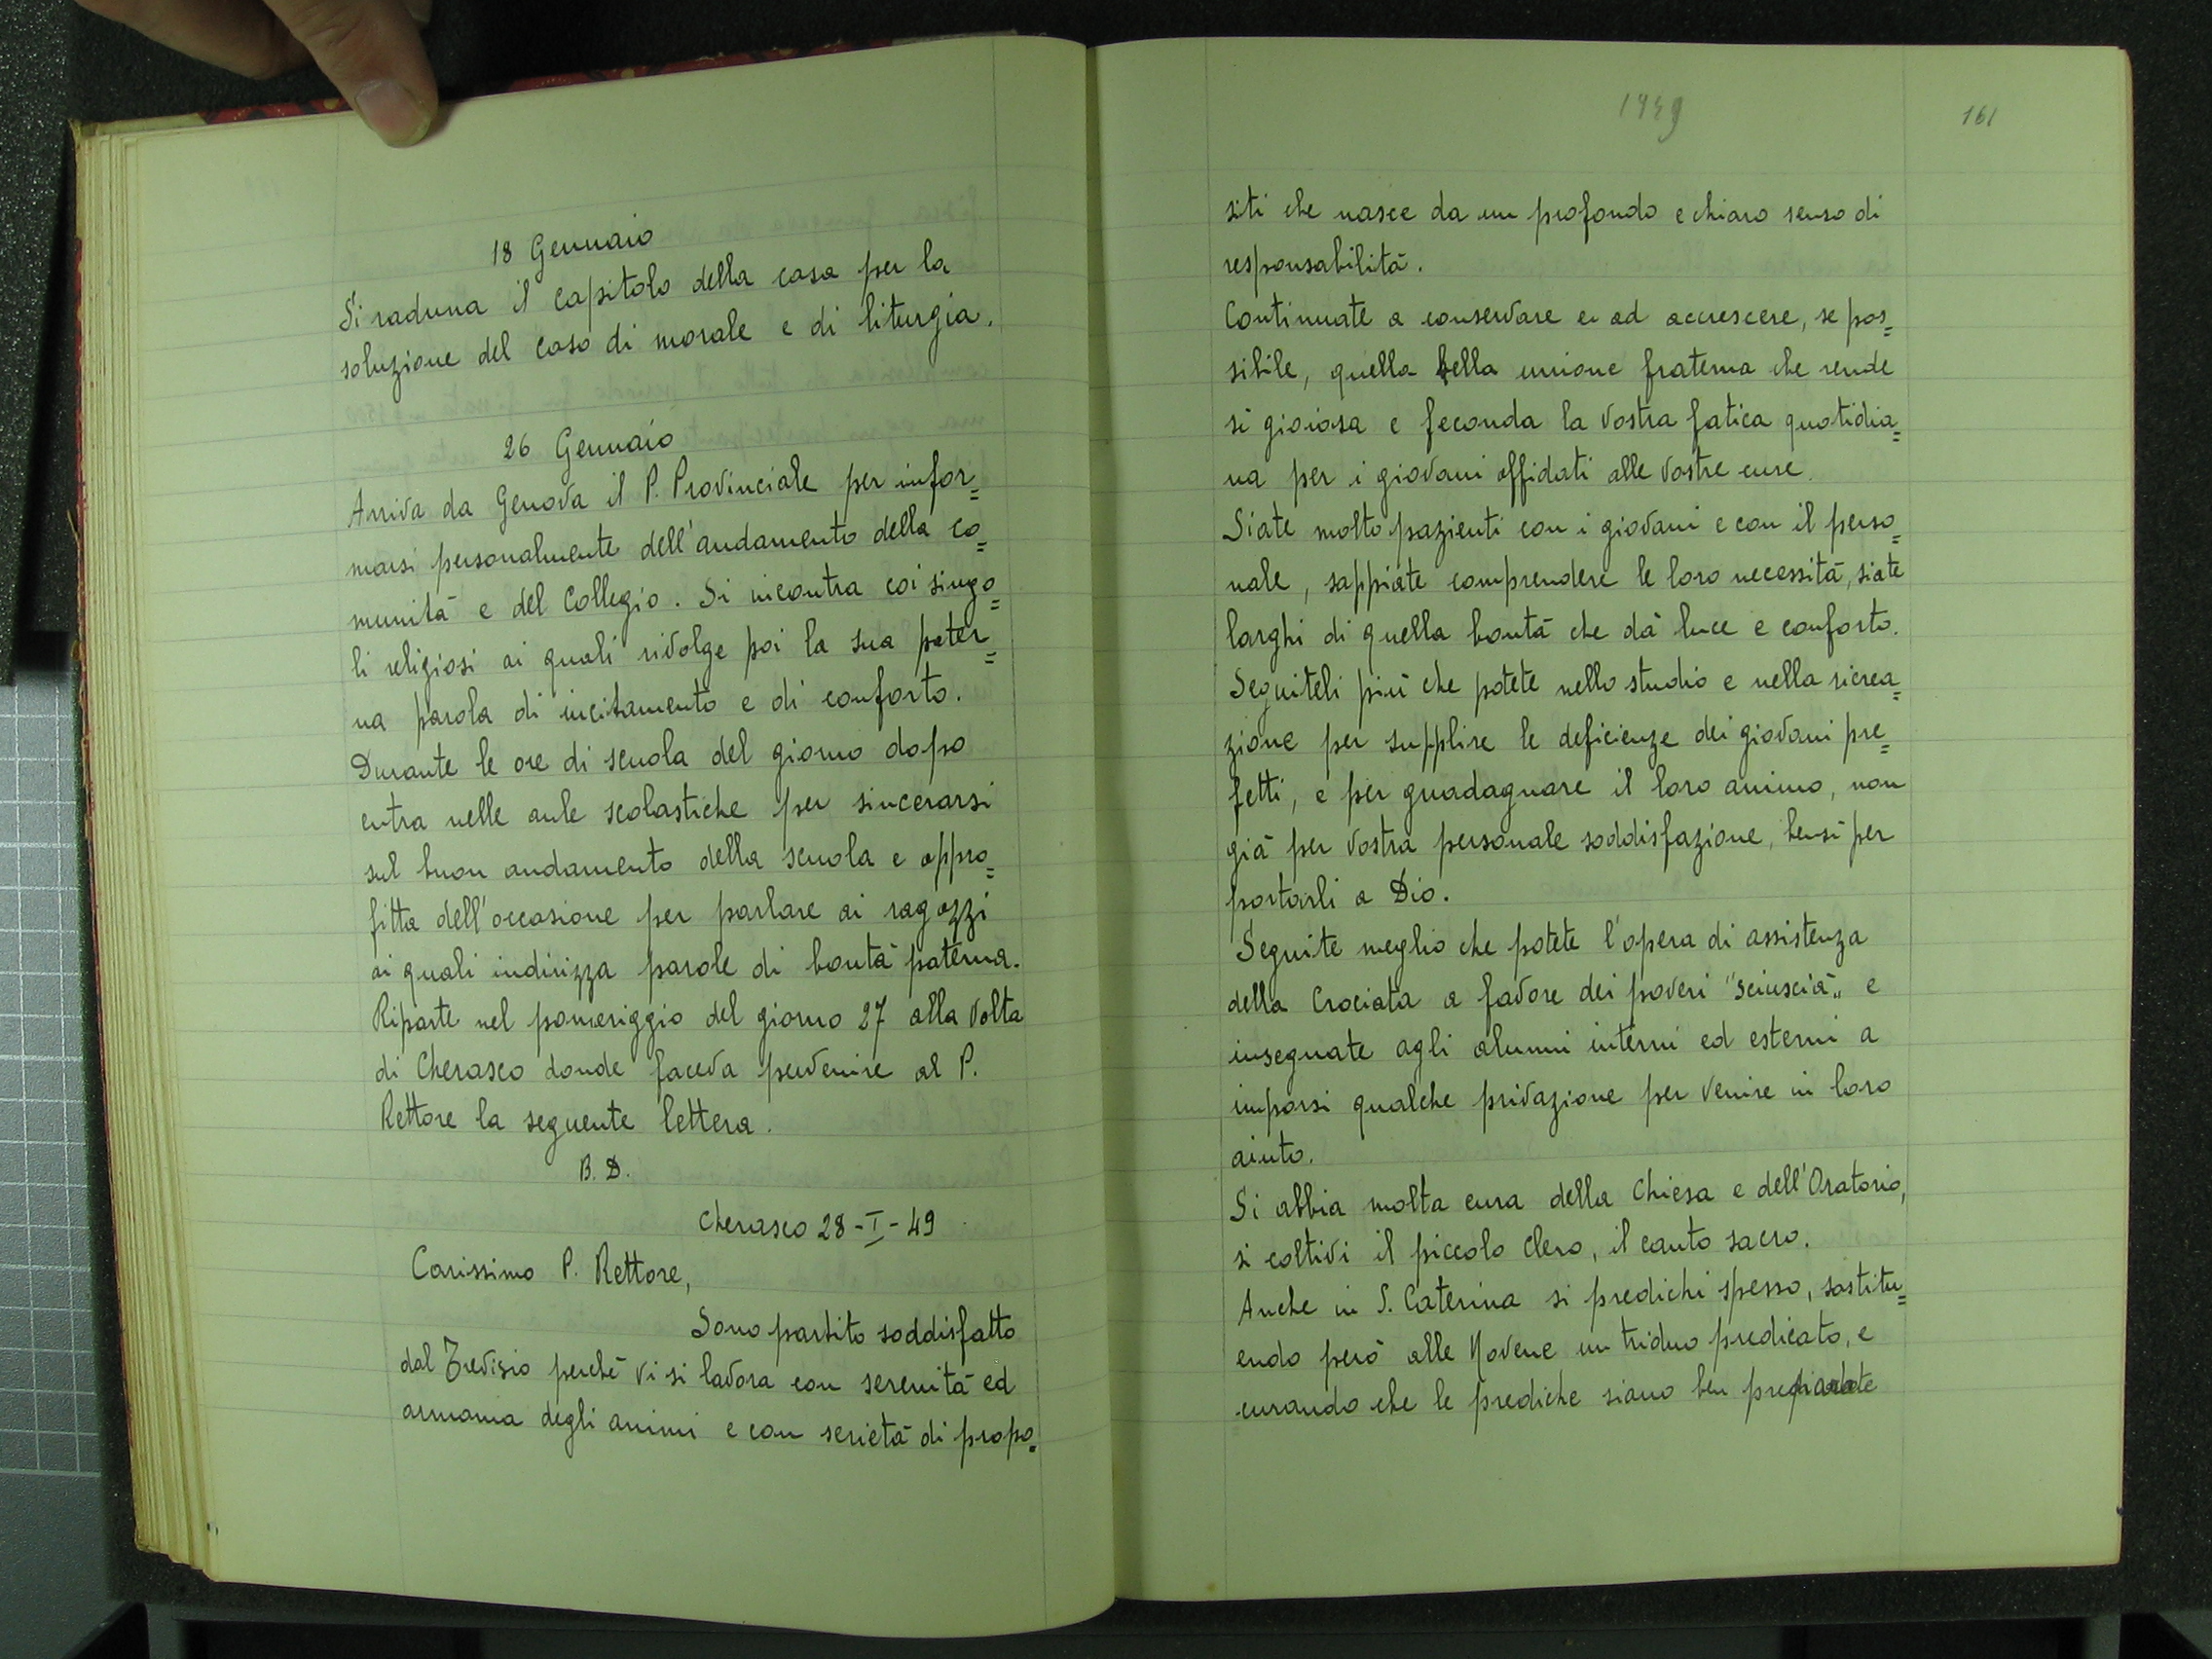 18 Gennaio
Si raduna il capitolo della casa per la
soluzione del caso di morale e di liturgia.
26 Gennaio
Arriva da Genova il P. Provinciale per infor=
marsi personalmente dell'andamento della co=
munità e del Collegio. Si incontra coi singo=
li religiosi ai quali rivolge poi la sua pater=
na parola di incitamento e di conforto.
Durante le ore di scuola del giorno dopo
entra nelle aule scolastiche per sincerarsi
sul buon andamento della scuola e appro=
fitta dell'occasione per parlare ai ragazzi
ai quali indirizza parole di bontà paterna.
Riparte nel pomeriggio del giorno 27 alla volta
di Cherasco donde faceva pervenire al P.
Rettore la seguente lettera.
B. D.
Cherasco 28-I-49
Carissimo P. Rettore,
Sono partito soddisfatto
dal Trevisio perchè vi si lavora con serenità ed
armonia degli animi e con serietà di propo=
1949
161
siti che nasce da un profondo e chiaro senso di
responsabilità.
Continuate a conservare e ad accrescere, se pos=
sibile, quella bella unione fraterna che rende
sì gioiosa e feconda la vostra fatica quotidia=
na per i giovani affidati alle vostre cure.
Siate molto pazienti con i giovani e con il perso=
nale, sappiate comprendere le loro necessità, siate
larghi di quella bontà che dà luce e conforto.
Seguiteli più che potete nello studio e nella ricrea=
zione per supplire le deficienze dei giovani pre=
fetti, e per guadagnare il loro animo, non
già per vostra personale soddisfazione, bensì per
portarli a Dio.
Seguite meglio che potete l'opera di assistenza
della Crociata a favore dei poveri "sciuscià„ e
insegnate agli alunni interni ed esterni a
imporsi qualche privazione per venire in loro
aiuto.
Si abbia molta cura della Chiesa e dell'Oratorio,
si coltivi il piccolo clero, il canto sacro.
Anche in S. Caterina si predichi spesso, sostitu=
endo però alle Novene un triduo predicato, e
curando che le prediche siano ben preparate